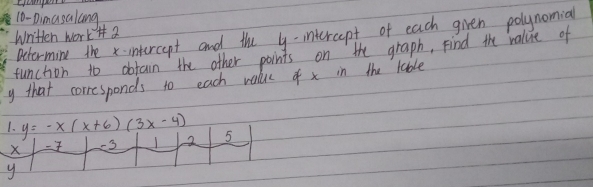 10-Dimasalang
Written Work # 2
Determine the x-intercept and the y-intercept of each given polynomial
function to obtain the other points on the graph, find the value of
y that corresponds to each value of x in the table
1. y= -x(x+6)(3x-4)
x -7 -3 1 2 5
y